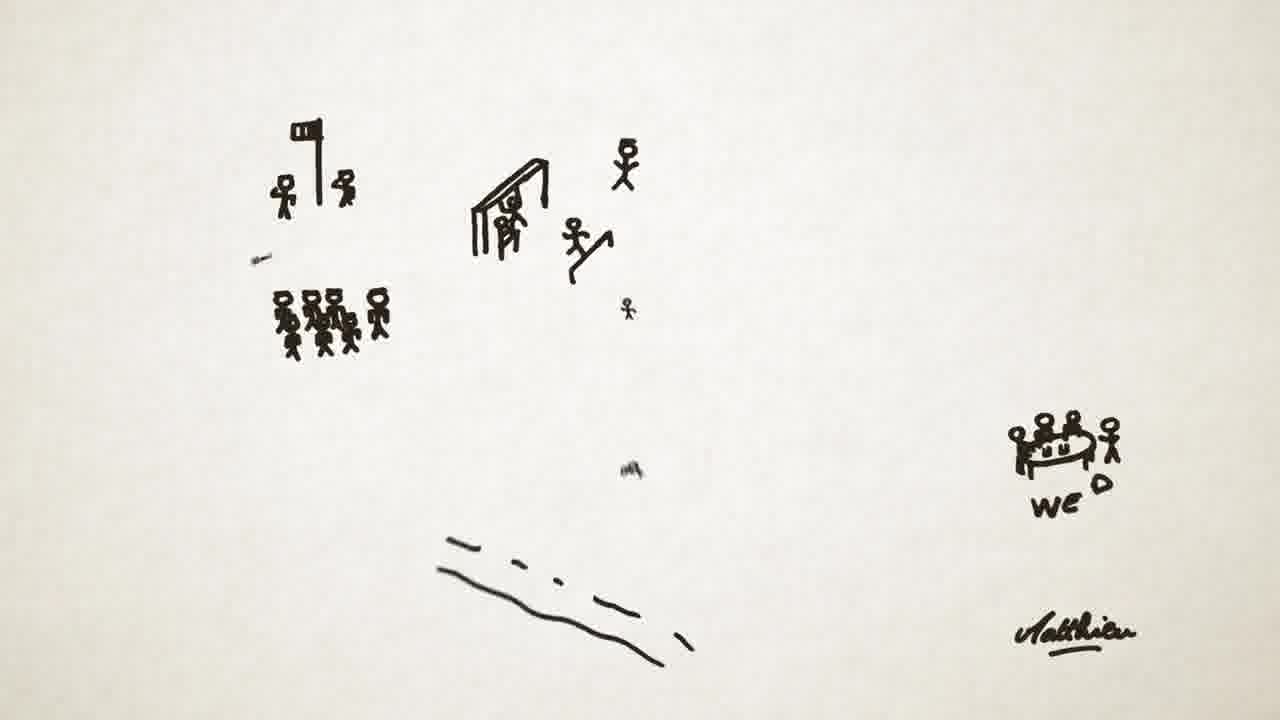 WE D
Matthieu